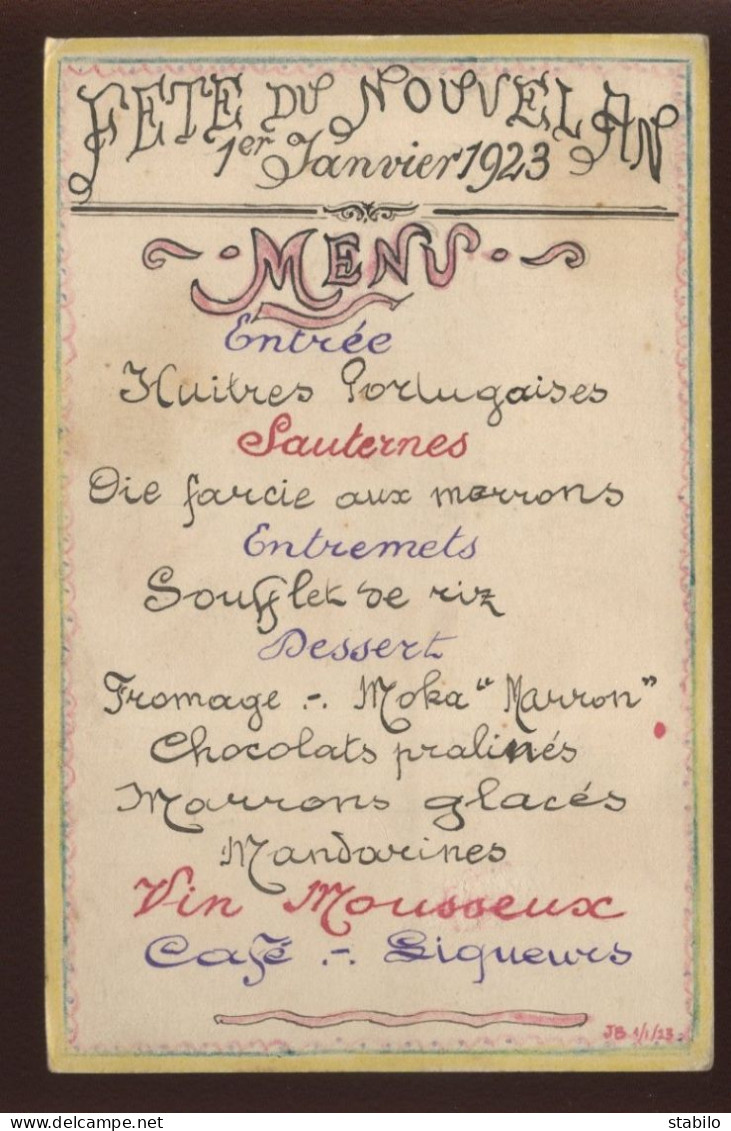 FETE DU NOUVEL AN
1er Janvier 1923
MENU
Entrée
Huitres Portugaises
Sauternes
Oie farcie aux marrons
Entremets
Soufflet de riz
Dessert
Fromage .-. Moka "Marron"
Chocolats pralinés
Marrons glacés
Mandarines
Vin Mousseux
Café .-. Liqueurs
JB 1/1/23
delcampe.net
stabilo